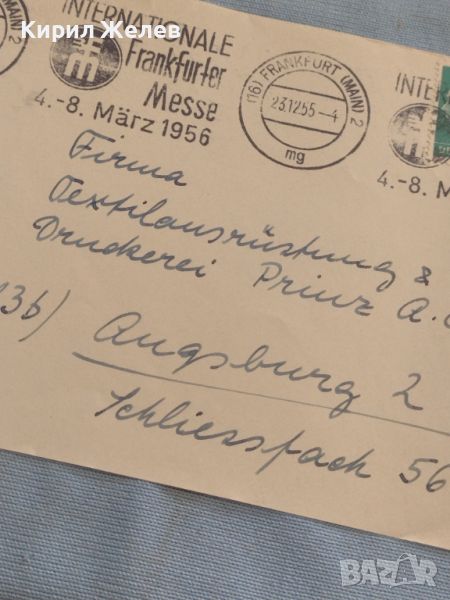 Кирил Желев
(MAIN) 2
INTERNATIONALE
Frankfurter
Messe
4.-8. März 1956
(16) FRANKFURT (MAIN) 2
23.12.55-4
mg
INTER
4.-8. M
Firma
Textilausrüstung &
Druckerei Prinz A.
13b) Augsburg 2
Schliessfach 56
BAZAR